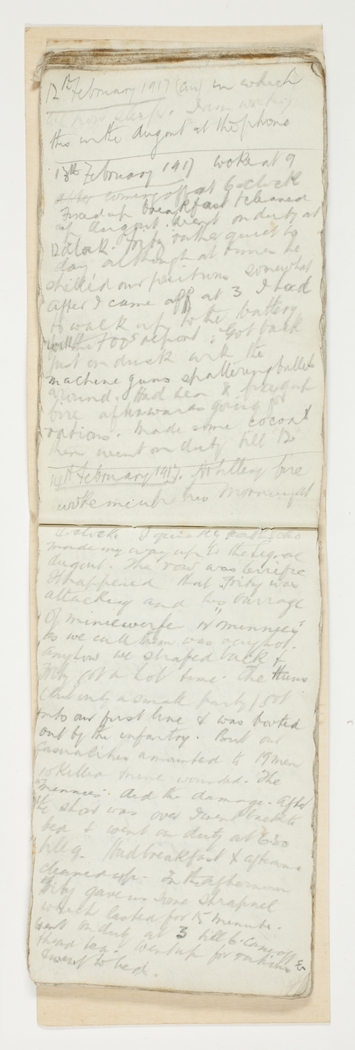 12th February 1917 (an) in which
this in the dugout at the phone
13th February 1917 woke at 9
after coming off at 6 oclock
Fixed up breakfast & cleaned
up dugout. Went on duty at
12 oclock. Fritz rather quiet to
day although at times he
shelled our positions somewhat
After I came off at 3 I had
to walk up to the battery
with the FOO's report. Got back
just on dusk with the
machine guns spattering bullets
around. Had tea & fixed up
fire afterwards going for
rations. Made some cocoa &
then went on duty till 12
14th February 1917. Artillery fire
woke me in this morning at
o'clock. I quickly
made my way up to the signal
dugout. The row was terrific
It happened that Fritz was
attacking and his barrage
of miniewerfe or "minnies"
as we call them was
anyhow we strafed back &
Fritz got a hot time. The Huns
(but only a small party) got
into our first line & was booted
out by the infantry. But our
casualties amounted to 19 men
10 killed nine wounded. The
"minnies" did the damage. After
the short was over I went back to
bed & went on duty at 6.30
till 9. Had breakfast & afterwards
cleaned up. In the afternoon
Fritz gave us some shrapnel
which lasted for 15 minutes.
Went on duty at 3 till 6. Came off &
had tea. Went up for rations &
went to bed.